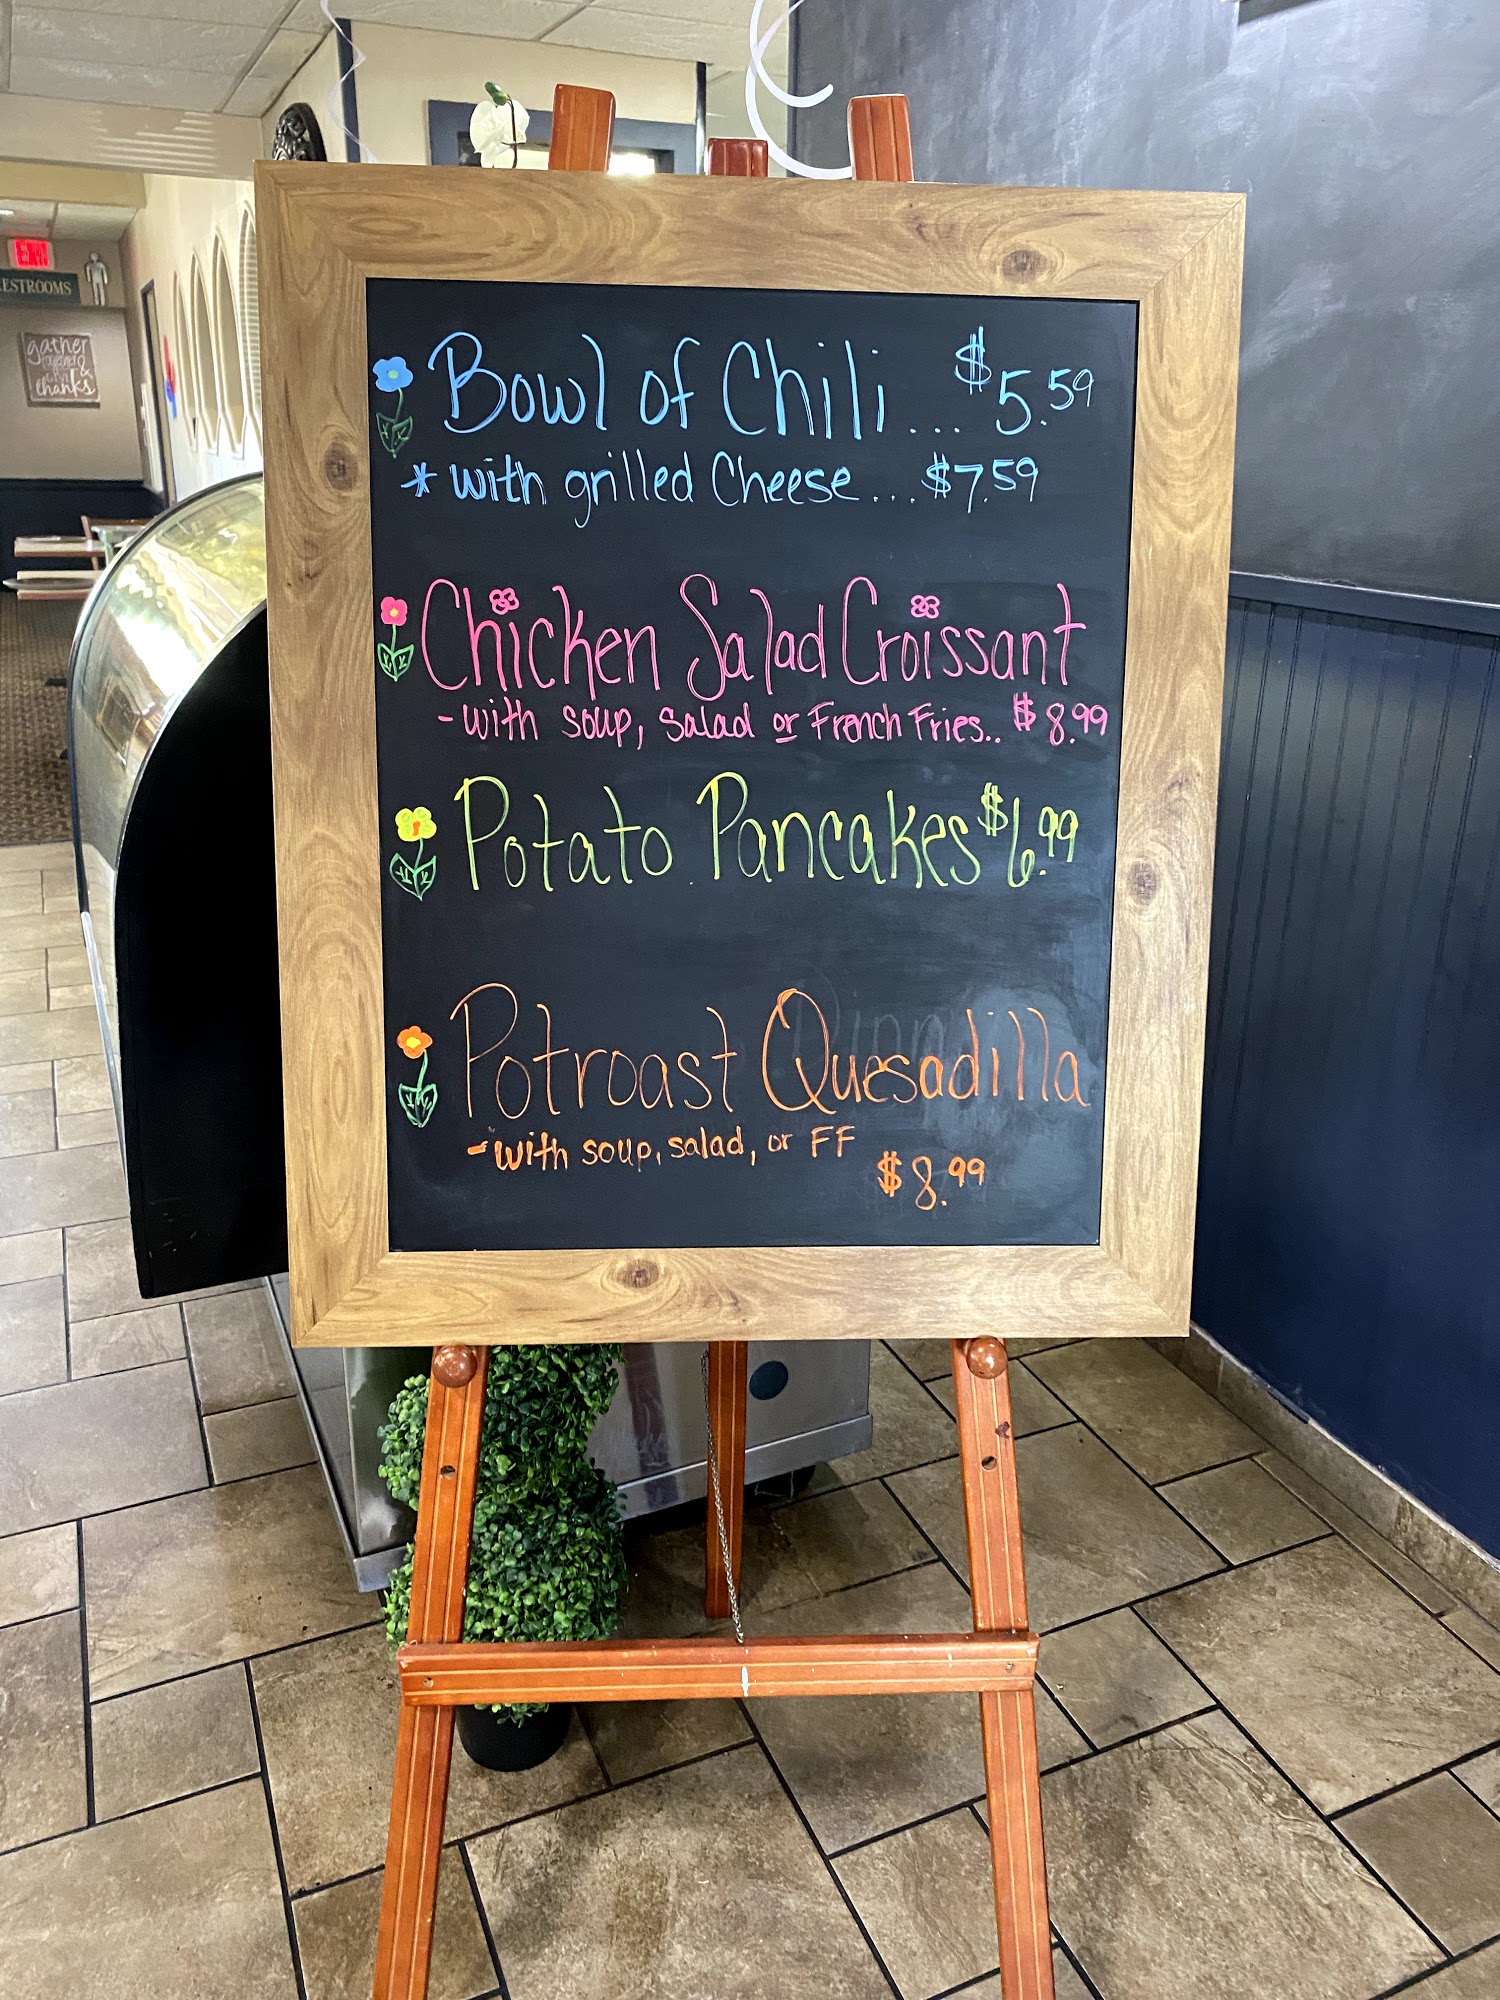 EXIT
RESTROOMS
gather
together &
thanks
Bowl of Chili... $5.59
* with grilled Cheese... $7.59
Chicken Salad Croissant
- with soup, salad or French Fries.. $8.99
Potato Pancakes $6.99
Potroast Quesadilla
- with soup, salad, or FF
$8.99